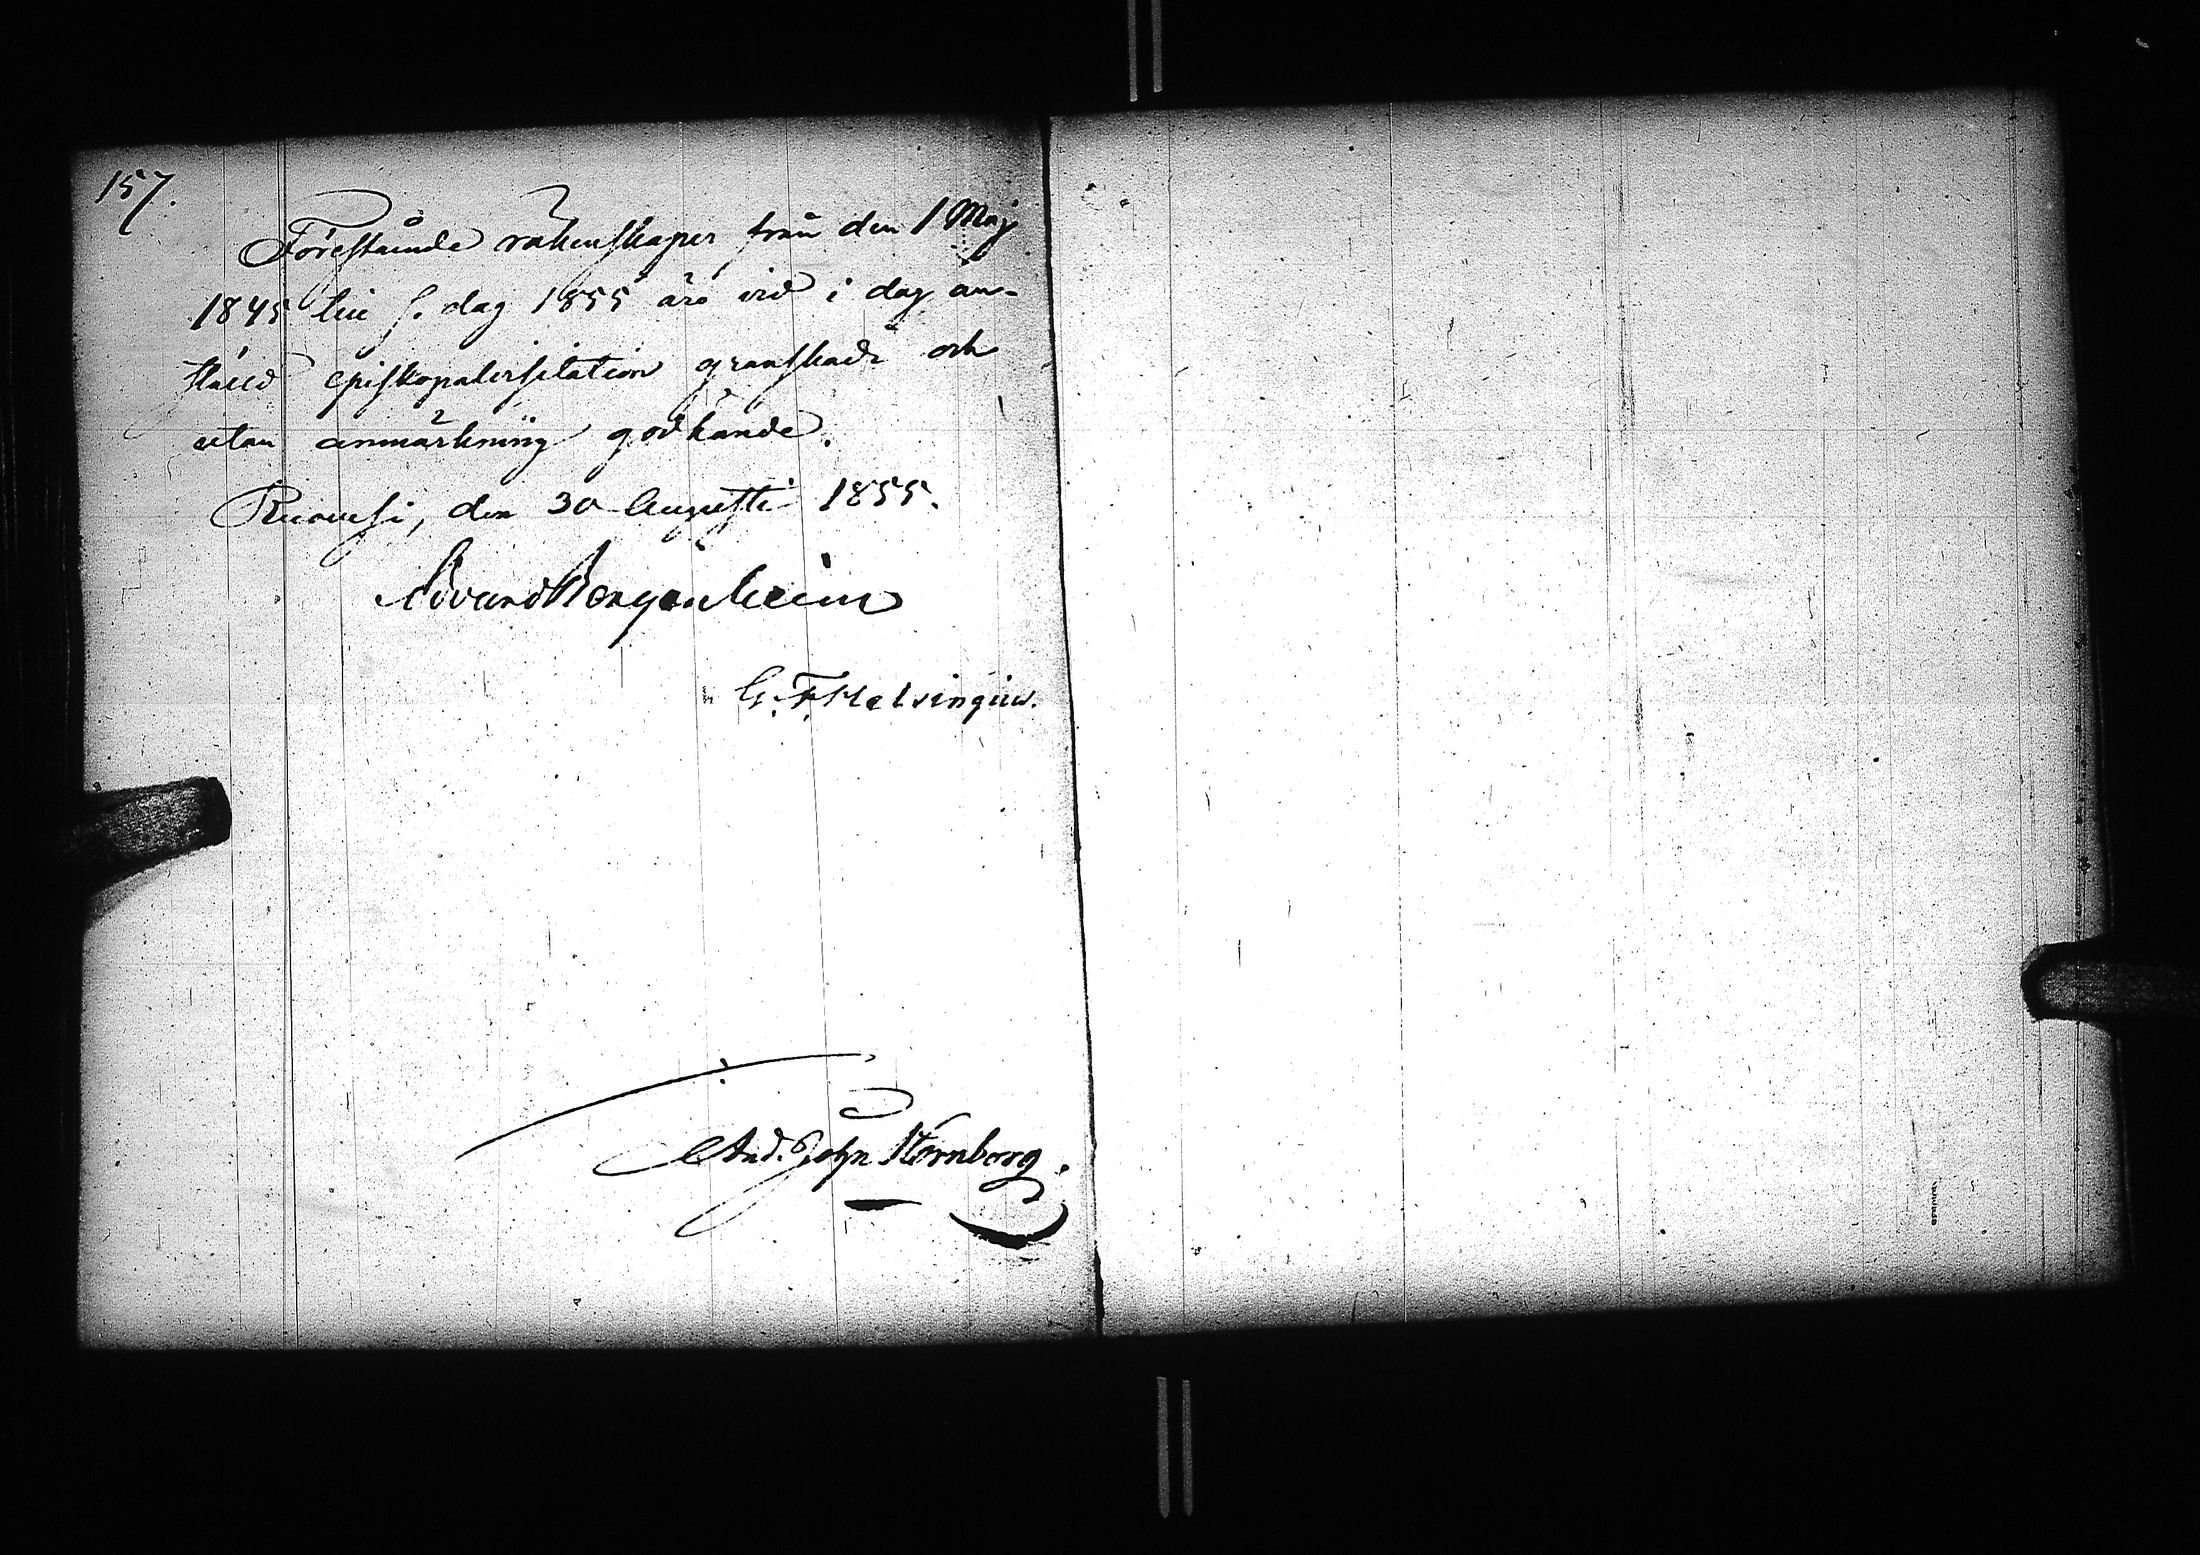 157.
Förestående räkenskaper från den 1 Maj
1845 till s. dag 1855 äro vid i dag an-
ställd episkopalvisitation granskade och
utan anmärkning godkände.
Ruovesi, den 30 Augusti 1855.
Edvard Bergenheim
G. F. Helsingius.
And. John Hornborg.